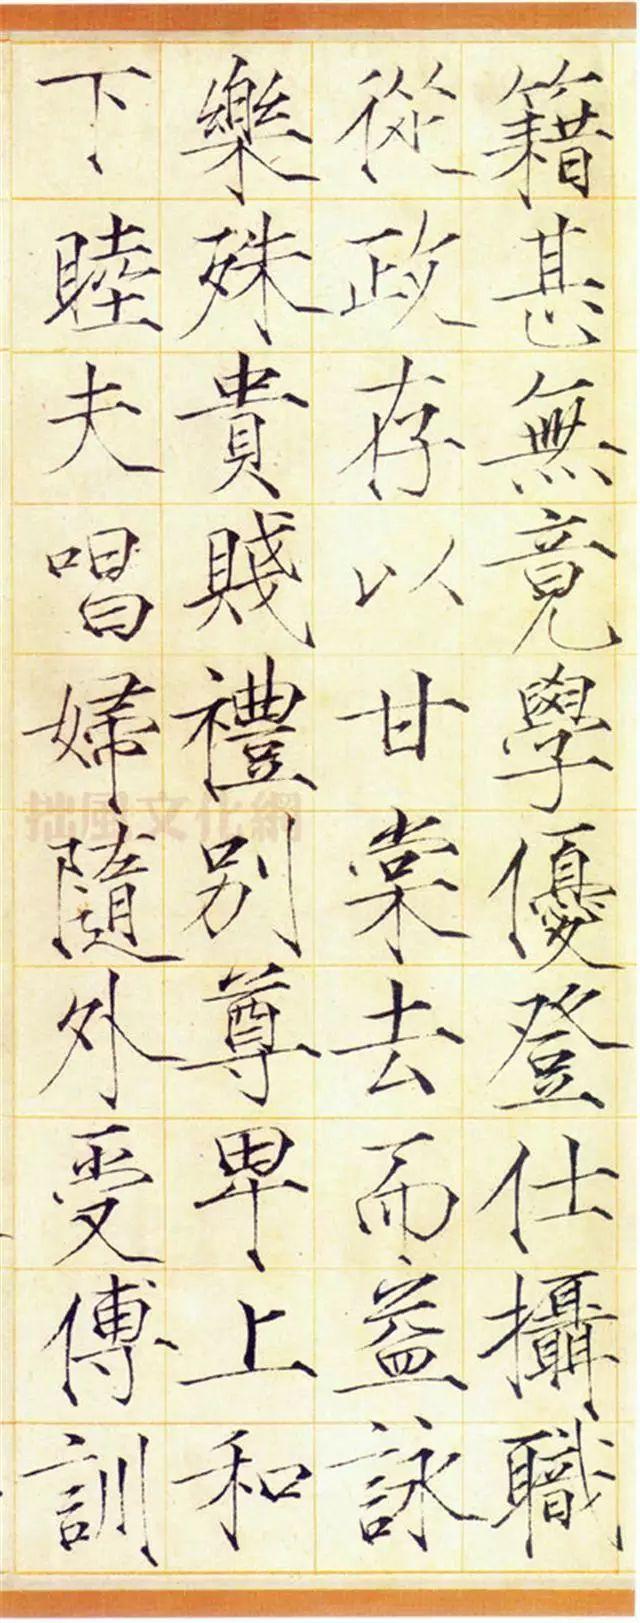 籍甚無竟學優登仕攝職
從政存以甘棠去而益詠
樂殊貴賤禮別尊卑上和
下睦夫唱婦隨外受傅訓
拙風文化網